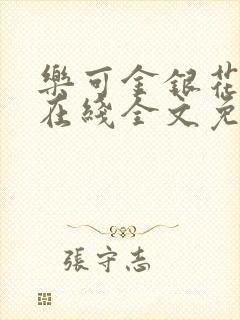 樂可金銀花
在綫全文免
張守志